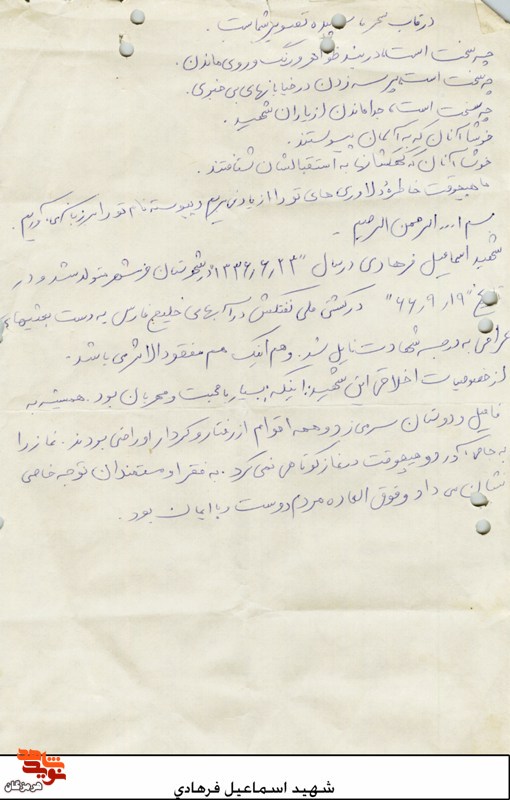 در قاب سحر تصویر شماست .
چه سخت است، در بند ظواهر و رنگ و روی ماندن .
چه سخت است، پرسه زدن در خیابانهای بی خبری .
چه سخت است، جدا ماندن از یاران شهید .
خوشا آنان که به آسمان پیوستند .
خوشا آنان که به استقبالشان شتافتند .
ما هیچوقت خاطره دلاوری های تو را از یاد نمی بریم و پیوسته نام تو را بر زبان
بسم ا... الرحمن الرحیم
شهید اسماعیل فرهادی در سال "۱۳۳۶٫۶٫۲۳" در شهرستان خرمشهر متولد شد و در
تاریخ "۶۶٫۹٫۱۹" در کشتی ملی نفتکش در آبهای خلیج فارس به دست بعثیهای
عراقی به درجه شهادت نایل شد. و هم اینک هم مفقودالاثر می باشد .
از خصوصیات اخلاقی این شهید : اینکه بسیار با محبت و مهربان بود . همیشه به
فامیل و دوستان سر می زد و همه اقوام از رفتار و کردار او راضی بودند . نماز را
به جا می آورد و هیچوقت در نماز کوتاهی نمی کرد . به فقرا و مستمندان توجه خاصی
نشان می داد و فوق العاده مردم دوست و با ایمان بود .
نوید شاهد
هرمزگان
شهید اسماعیل فرهادي